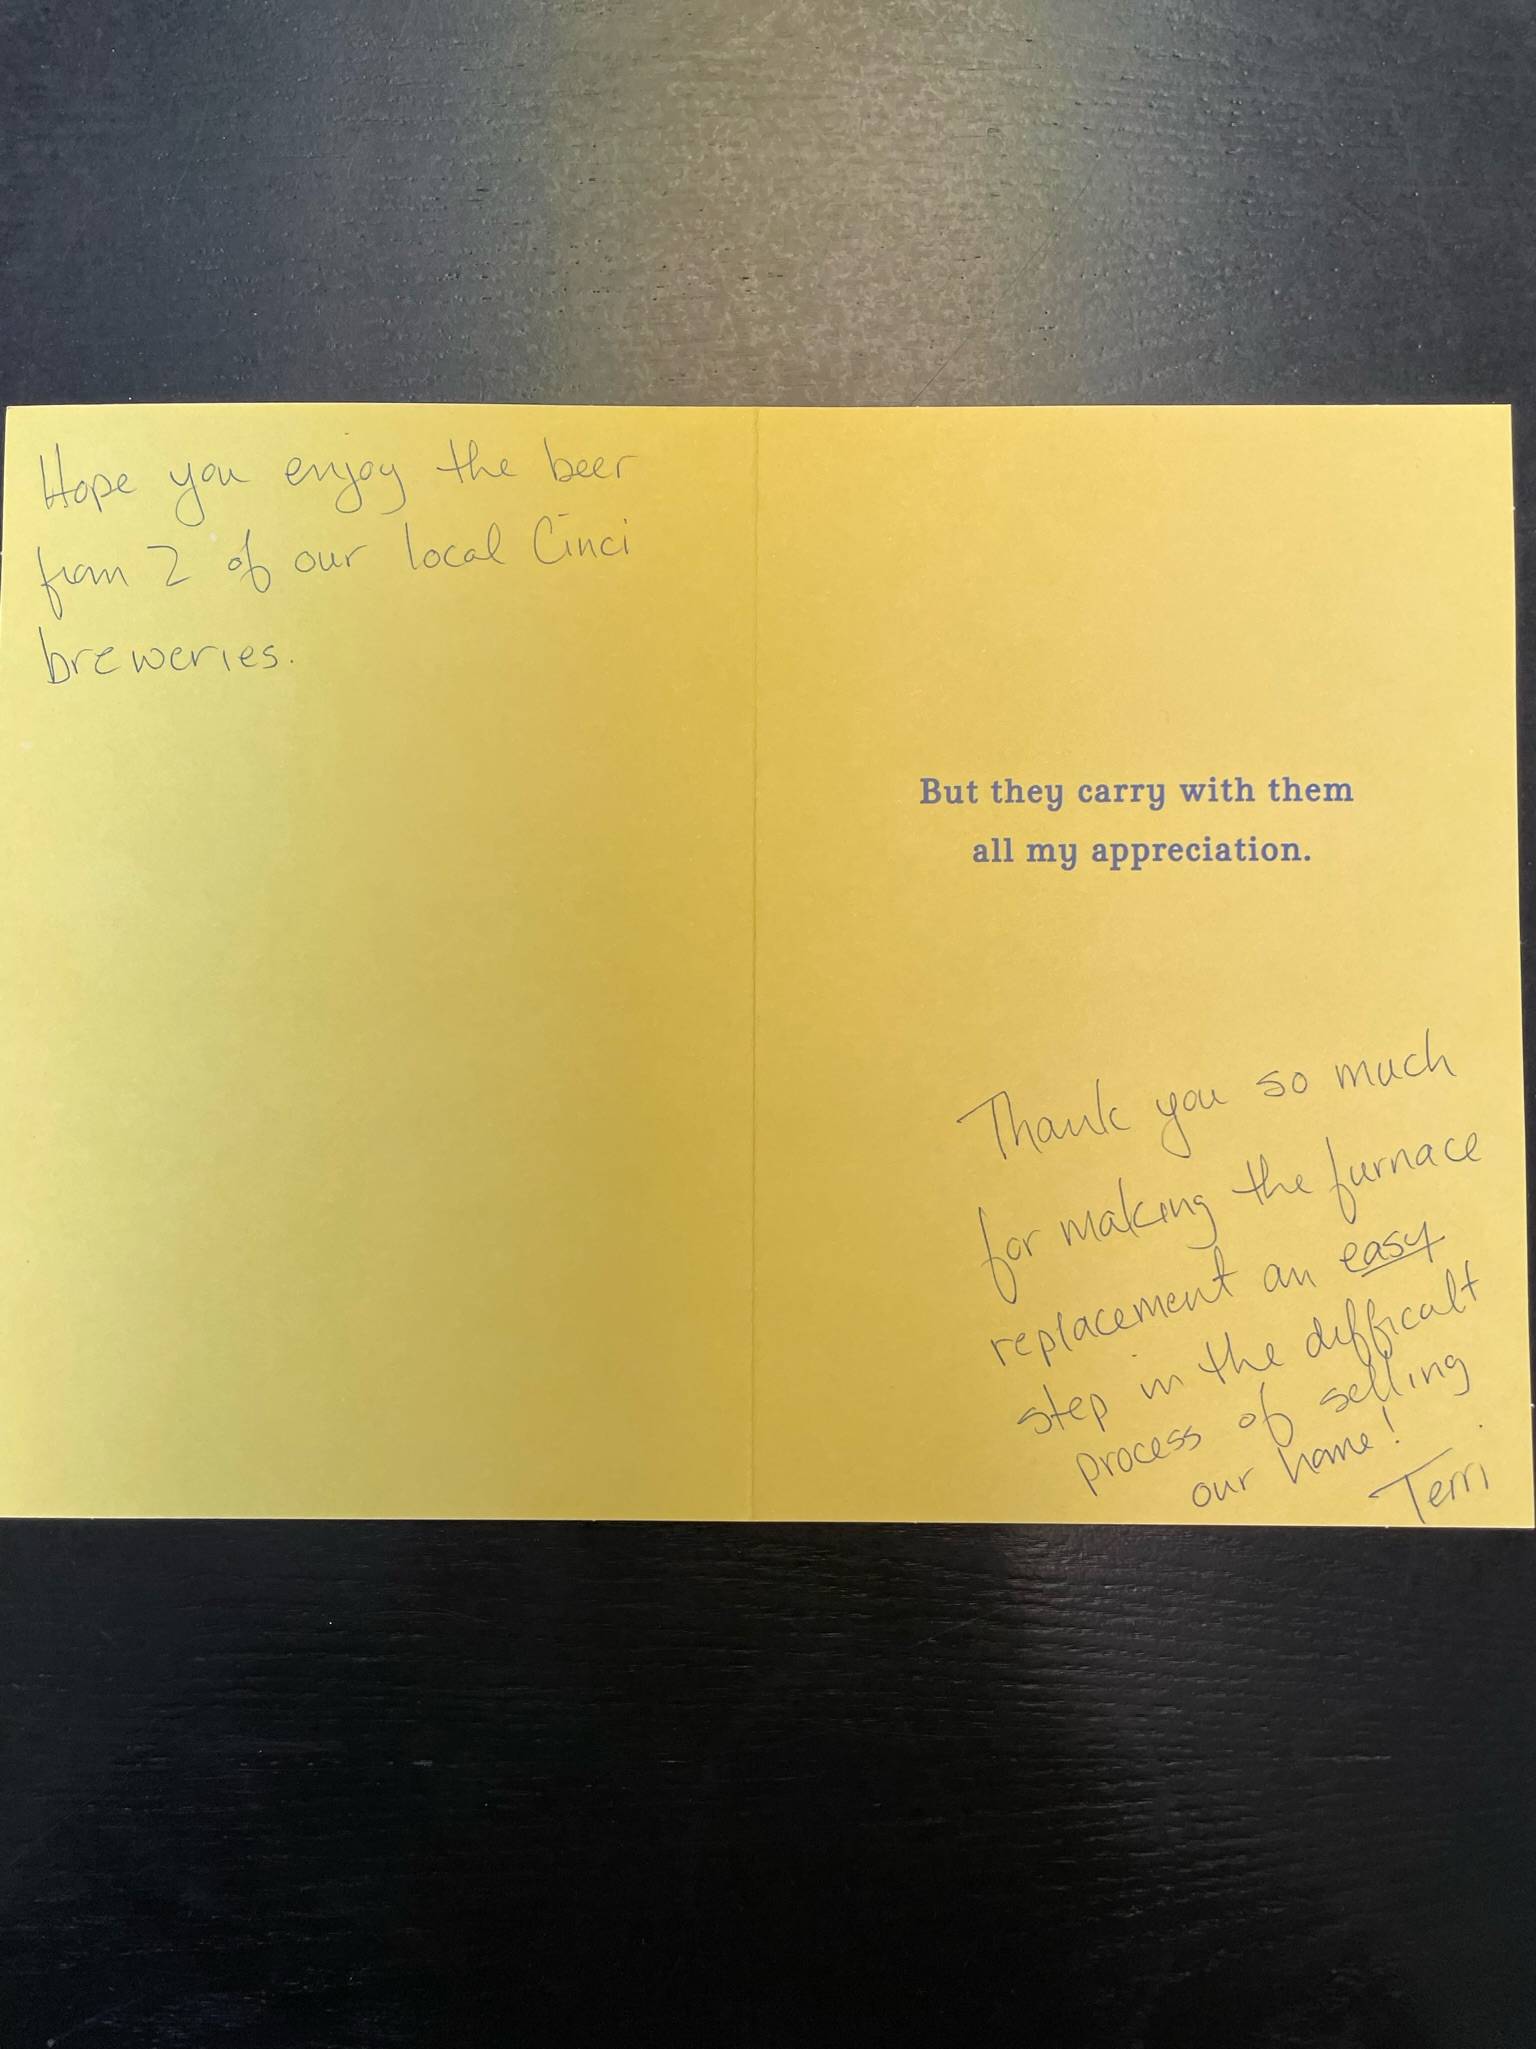 Hope you enjoy the beer
from 2 of our local Cinci
breweries.
But they carry with them
all my appreciation.
Thank you so much
for making the furnace
replacement an easy
step in the difficult
process of selling
our home!
Terri